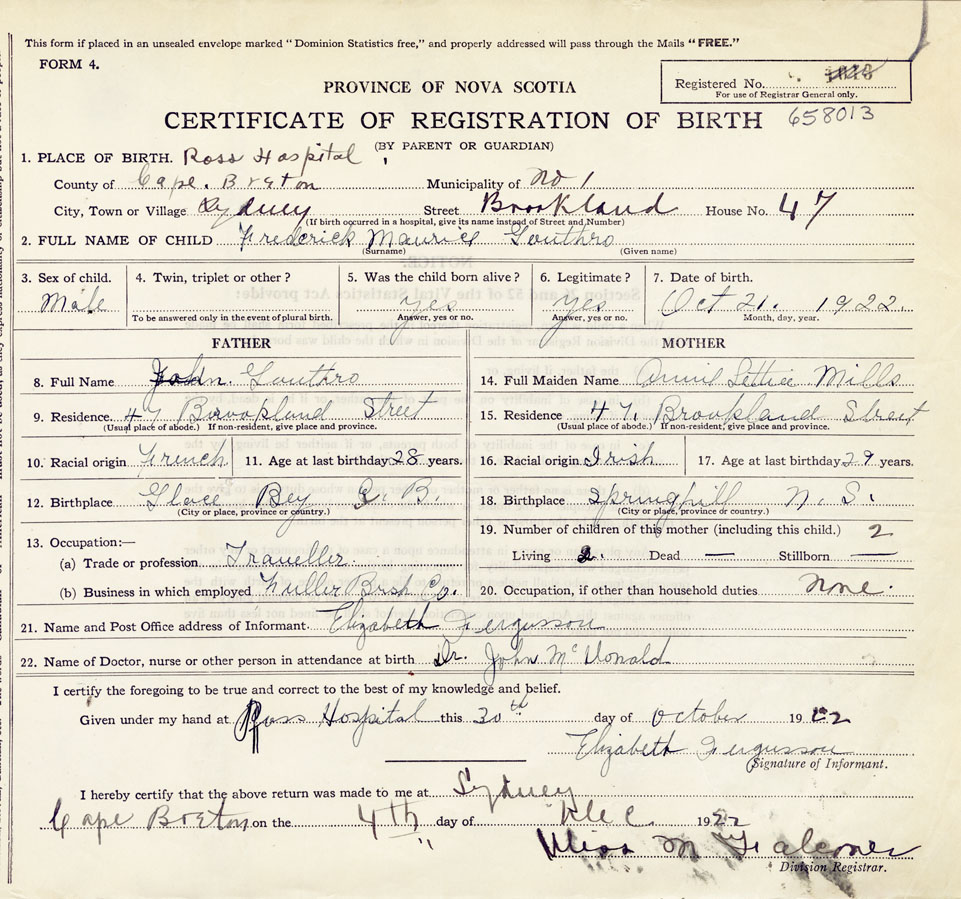 This form if placed in an unsealed envelope marked "Dominion Statistics free," and properly addressed will pass through the Mails "FREE."
FORM 4.
Registered No.
For use of Registrar General only.
PROVINCE OF NOVA SCOTIA
CERTIFICATE OF REGISTRATION OF BIRTH 658013
(BY PARENT OR GUARDIAN)
1. PLACE OF BIRTH. Ross Hospital
County of Cape. Breton Municipality of No 1
City, Town or Village Sydney Street Brookland House No. 47
(If birth occurred in a hospital, give its name instead of Street and Number)
2. FULL NAME OF CHILD Frederick Maurice Gouthro
(Surname) (Given name)
3. Sex of child. 4. Twin, triplet or other? 5. Was the child born alive? 6. Legitimate? 7. Date of birth.
Male Yes Yes Oct 21. 1922.
To be answered only in the event of plural birth. Answer, yes or no. Answer, yes or no. Month, day, year.
FATHER MOTHER
8. Full Name John. Gouthro 14. Full Maiden Name Lettice Mills
9. Residence. 47 Brookland Street 15. Residence 47. Brookland Street
(Usual place of abode.) If non-resident, give place and province. (Usual place of abode.) If non-resident, give place and province.
10. Racial origin French 11. Age at last birthday 28 years. 16. Racial origin Irish 17. Age at last birthday 29 years.
12. Birthplace Glace Bey C. B. 18. Birthplace Springhill N. S.
(City or place, province or country.) (City or place, province or country.)
13. Occupation:— 19. Number of children of this mother (including this child.) 2
(a) Trade or profession Traveller. Living 2. Dead — Stillborn —
(b) Business in which employed Fuller Brsh Co. 20. Occupation, if other than household duties None.
21. Name and Post Office address of Informant. Elizabeth Fergusson
22. Name of Doctor, nurse or other person in attendance at birth Dr. John McDonald
I certify the foregoing to be true and correct to the best of my knowledge and belief.
Given under my hand at Ross Hospital this 30th day of October 1922
Elizabeth Fergusson
Signature of Informant.
I hereby certify that the above return was made to me at Sydney
Cape Breton on the 4th day of Dec 1922
Miss M Falconer
Division Registrar.